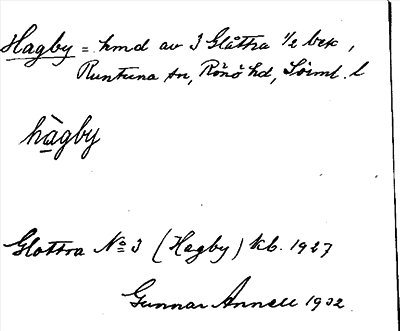 Hagby = hmd av 3 Glåttra 1/2 bek,
Runtuna sn, Rönö hd, Sörml. l
hàgby
Glottra No 3 (Hagby) kb. 1927
Gunnar Annell 1932.